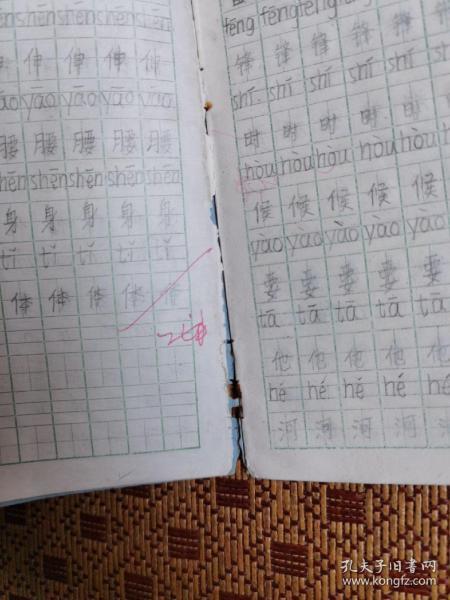 shēn shēn shēn shēn
伸 伸 伸 伸 伸
yāo yāo yāo yāo
腰 腰 腰 腰 腰
shēn shēn shēn shēn
身 身 身 身 身
tǐ tǐ tǐ tǐ tǐ
体 体 体 体 体
fēng fēng fēng fēng
锋 锋 锋 锋 锋
shí shí shí shí
时 时 时 时 时
hòu hòu hòu hòu hòu
候 候 候 候 候
yào yào yào yào yào
要 要 要 要 要
tā tā tā tā tā
他 他 他 他 他
hé hé hé hé hé
河 河 河 河 河
孔夫子旧书网
www.kongfz.com